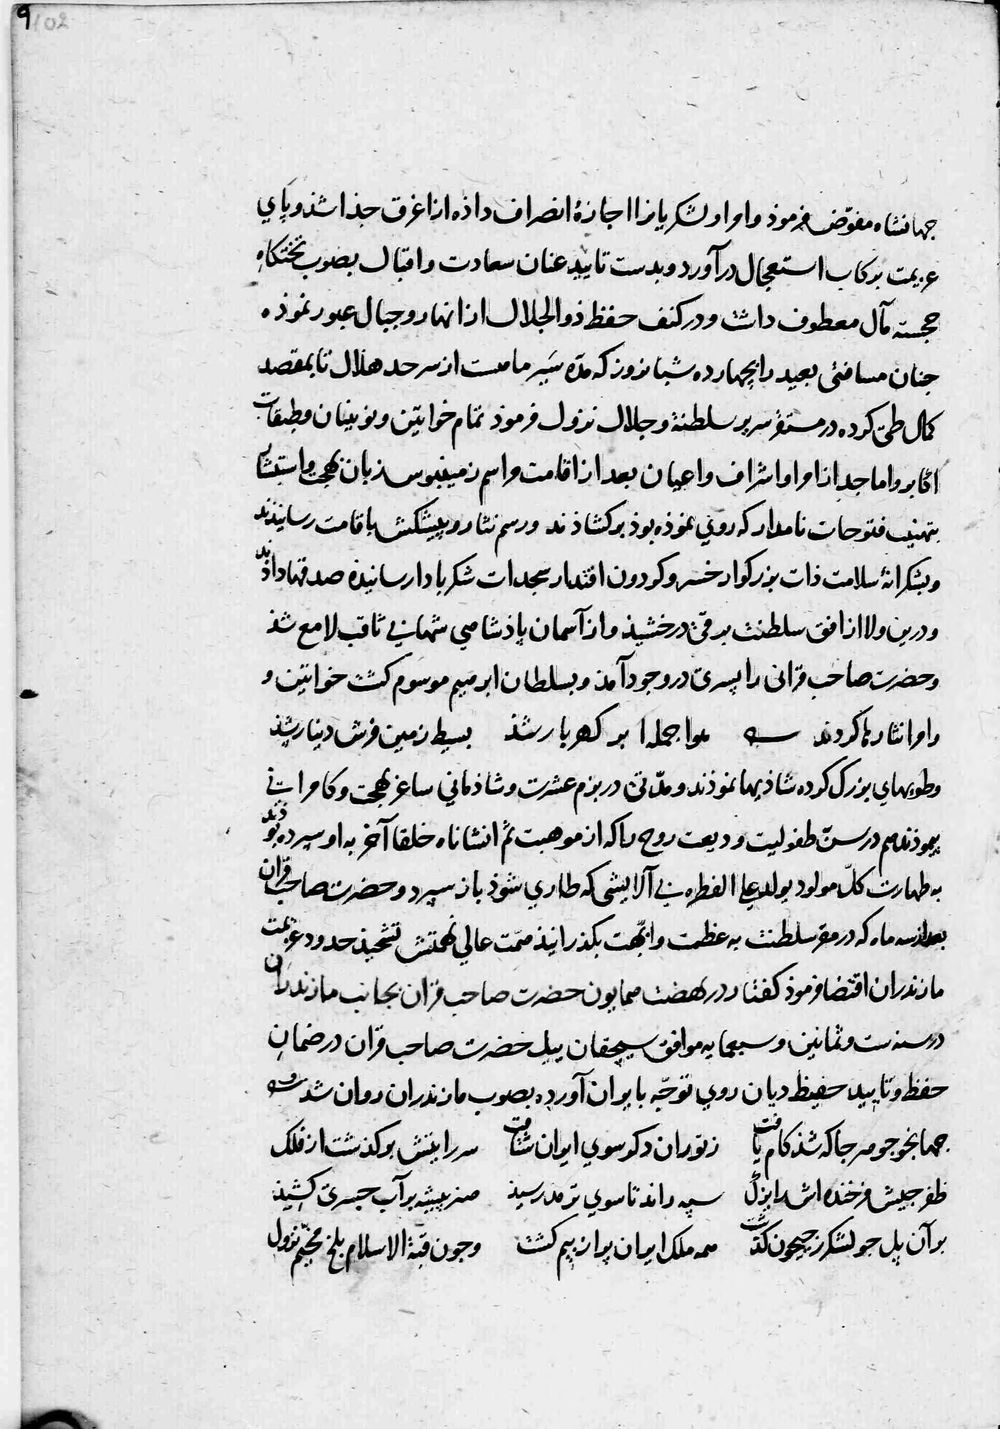 9/02
جهانشاه مفوّض فرموذ و امرا و لشكريانرا اجازهٔ انصراف داذه از اغرق جذا شذ و پاي
عزيمت بركاب استعجال در آورد و بدست تاييد عنان سعادت و اقبال بصوب تختكاهِ
خجسته مآل معطوف داشت و در كنف حفظ ذو الجلال از انهار و جبال عبور نموذه
جنان مسافتى بعيد را بچهارده شبانروز كه مدّة سَير ماهست از سرحد هلال تا بمقصد
كمال طى كرده در مستقرّ سرير سلطنة و جلال نزول فرموذ تمام خواتين و نوينان و طبقات
اكابر و اماجد از امرا و اشراف و اعيان بعد از اقامت مراسم زمينبوس زبان بهجت و استبشار
بتهنيت فتوحات نامدار كه روي نموذه بوذ بركشاذند و رسم نثار و پيشكش باقامت رسانيذند
و بشكرانهٔ سلامت ذات بزركوار خسرو كردون اقتدار سجدات شكر بادا رسانيذه صدقها داذند
و درين ولا از افق سلطنت برقى درخشيذ و از آسمان پاذشاهي شهابي ثاقب لامع شذ
و حضرت صاحب قرانى را پسرى در وجود آمذ و بسلطان ابرهيم موسوم كشت خواتين و
امرا نثارها كردند هوا جمله ابر كهربار شذ بسيط زمين فرش دينار شذ
و طويهاي بزرك كرده شاذيها نموذند و مدّتى در بزم عشرت و شاذماني ساغر بهجت و كامراني
پيموذند هم در سنّ طفوليت وديعت روح را كه از موهبت ثم انشاناه خلقا آخر به او سپرده بوذند
به طهارت كلّ مولود يولد علي الفطره بي آلايشى كه طاري شوذ باز سپرد و حضرت صاحب قران
بعد از سه ماه كه در مقر سلطنت به عظمت و ابّهت بكذرانيذ همّت عالي نهمتش تشحيذ حدود عزيمت
مازندران اقتضا فرموذ كفتار در نهضت همايون حضرت صاحب قران بجانب مازندران
در سنه ست و ثمانين و سبعمايه موافق سيچقان ييل حضرت صاحب قران در ضمان
حفظ و تاييد حفيظ ديان روي توجّه بايران آورده بصوب مازندران روان شد
جهانجو جو هر جا كه شذ كام يافت ز توران دكر سوي ايران شتافت سر رايتش بر كذشت از فلك
ظفر جيش فرخنده اش را يزك سپه راند تا سوي ترمد رسيذ هنر پيشه بر آب جسرى كشيذ
بر آن پل جو لشكر ز جيحون كذشت همه ملك ايران پر از بيم كشت و جون قبّة الاسلام بلخ مخيّم نزول